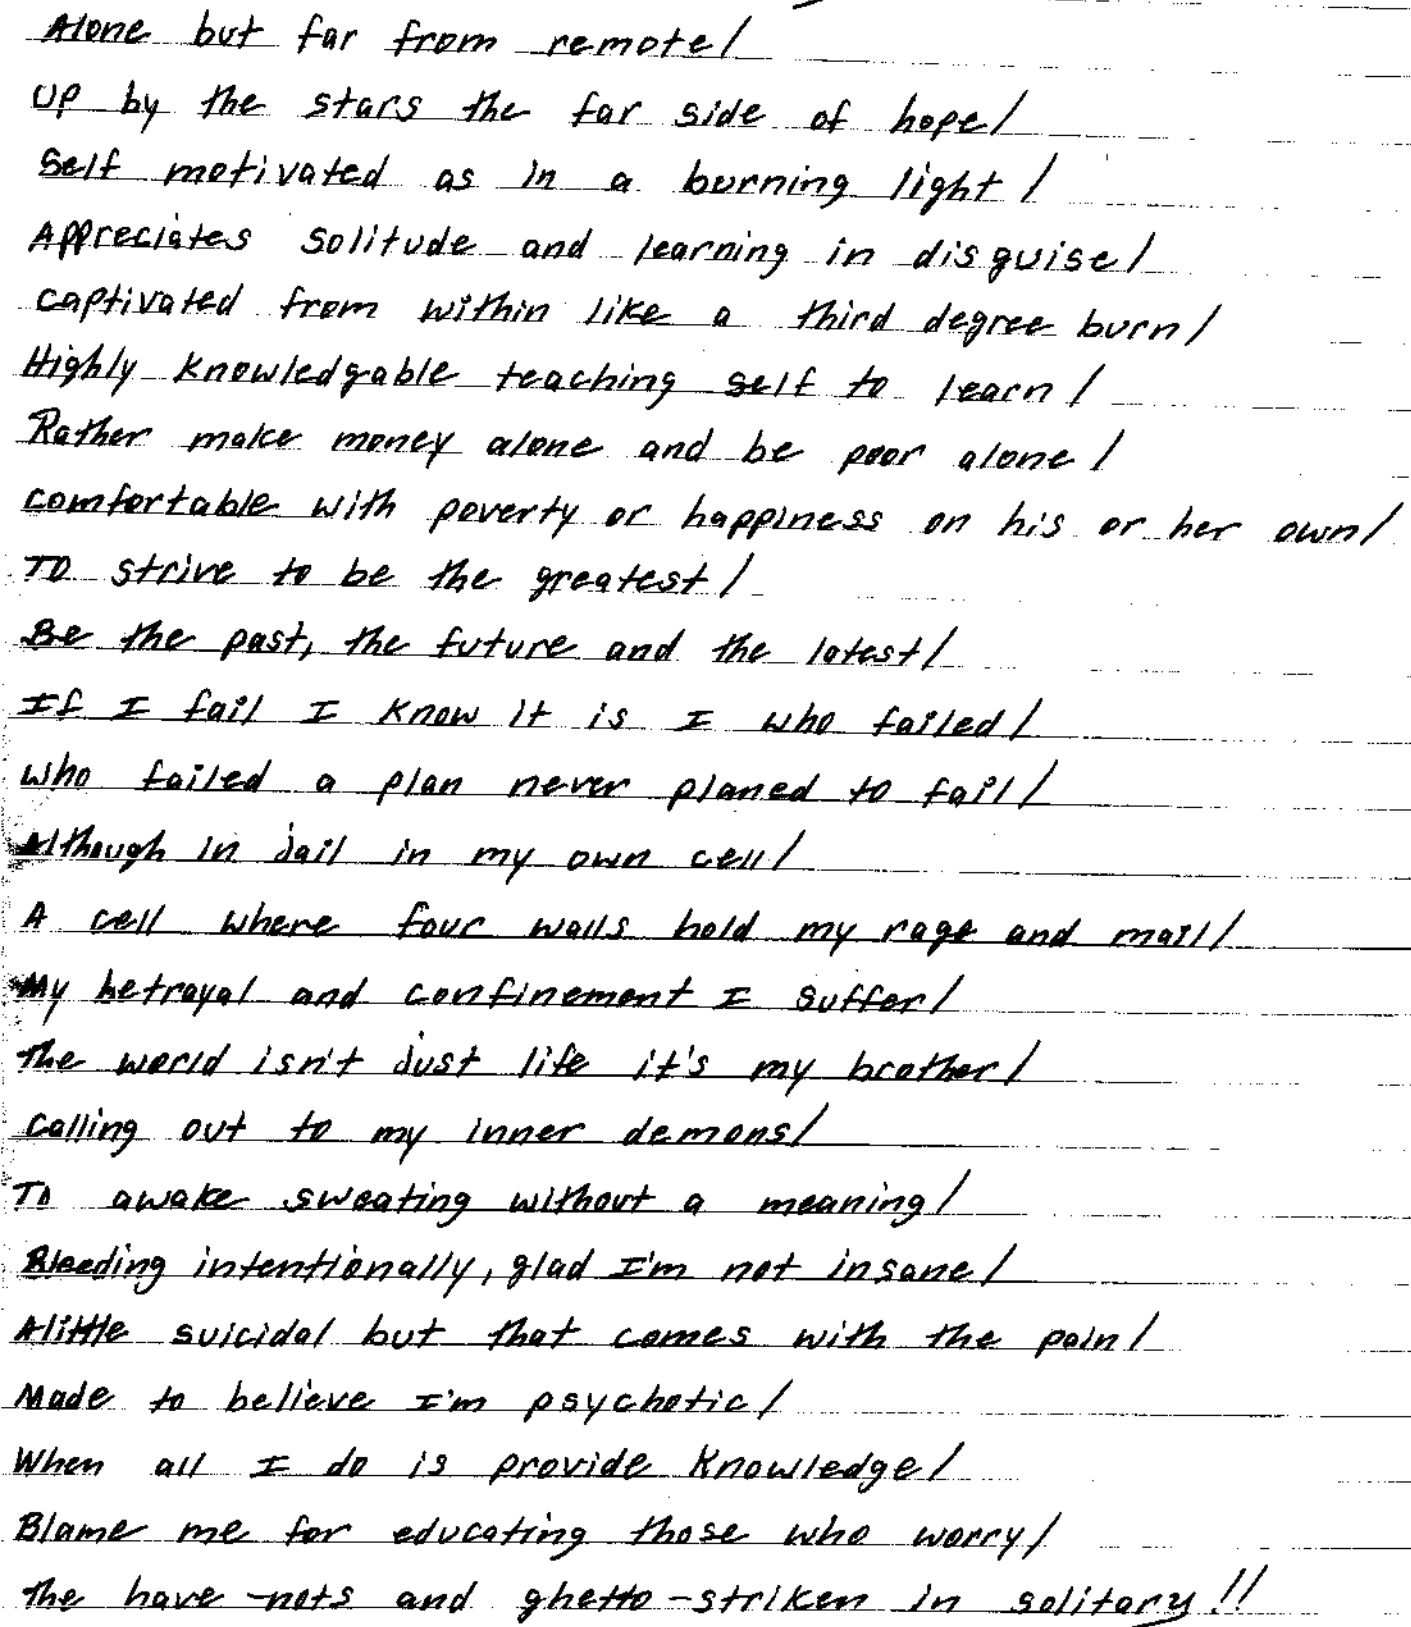 Alone but far from remote/
Up by the stars the far side of hope/
Self motivated as in a burning light/
Appreciates solitude and learning in disguise/
captivated from within like a third degree burn/
Highly knowledgable teaching self to learn/
Rather make money alone and be poor alone/
comfortable with poverty or happiness on his or her own/
To strive to be the greatest/
Be the past, the future and the latest/
If I fail I know it is I who failed/
who failed a plan never planed to fail/
Although in jail in my own cell/
A cell where four walls hold my rage and mail/
My betrayal and confinement I suffer/
The world isn't just life it's my brother/
Calling out to my inner demons/
To awake sweating without a meaning/
Bleeding intentionally, glad I'm not insane/
Alittle suicidal but that comes with the pain/
Made to believe I'm psychotic/
When all I do is provide knowledge/
Blame me for educating those who worry/
The have-nots and ghetto-striken in solitary!!